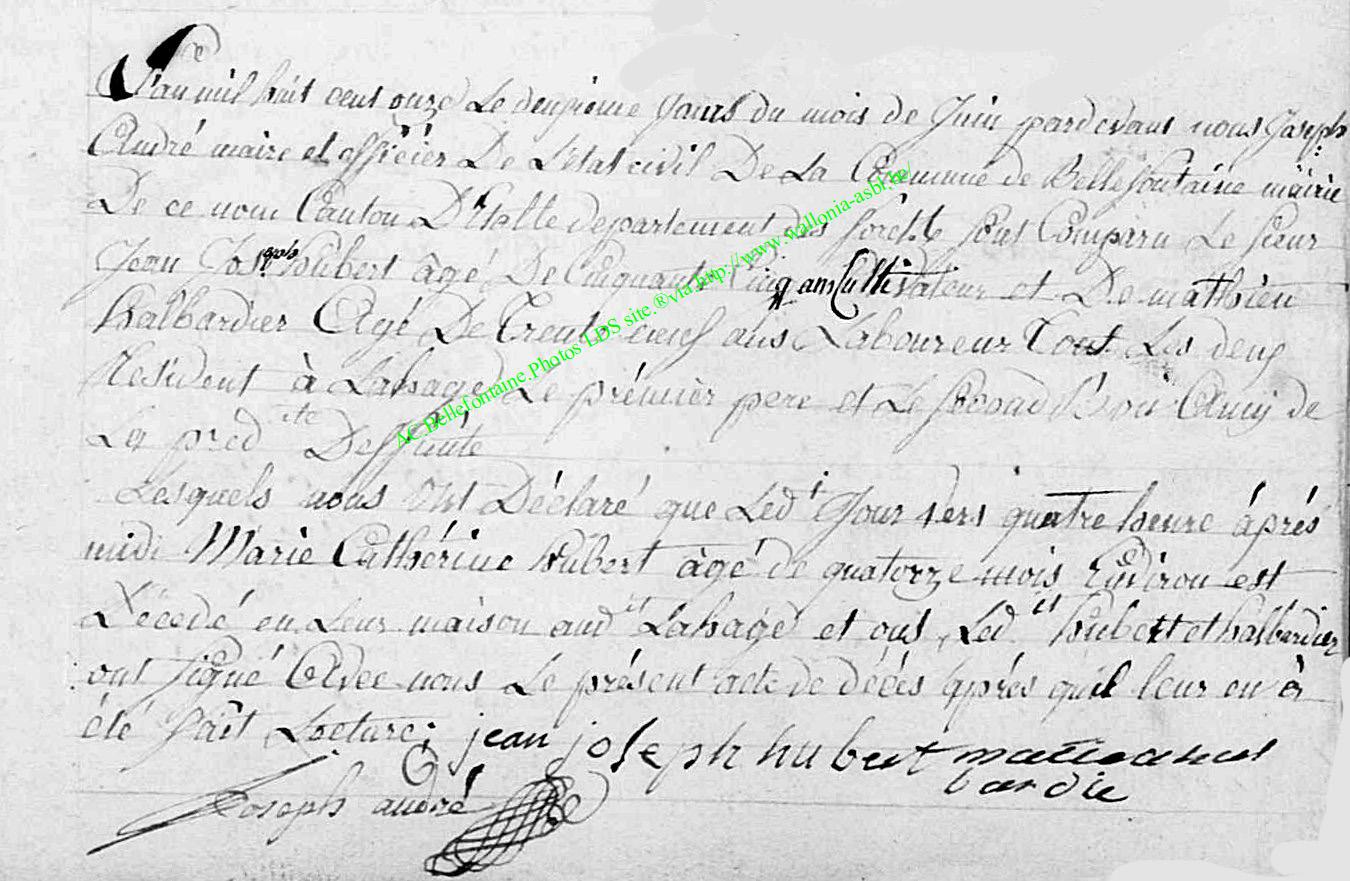 L'an mil huit cent onze Le deuxieme Jours du mois de Juin pardevant nous Joseph
André maire et officier De L'état civil De La Commune de Bellefontaine mairie
De ce nom Canton D'Etalle departement des forêts sont Comparu Le sieur
Jean Joseph hubert âgé De Cinquante Cinq ans Cultivateur et De mathieu
halbardier Agé De Trente neuf ans Laboureur Tous Les deux
Résident à Lahage Le prémier pere et Le second Amy de
La pred ite Deffunte
Lesquels nous Ont Déclaré que Led t Jour vers quatre heure áprés
midi Marie Cathérine hubert àgé de quatorze mois Environ est
Décedé en Leur maison aud it Lahage et ous Led it hubert et halbardier
ont signé Avec nous Le présent acte de décés áprés qu'il leur en à
été fait Lecture; jean joseph hubert
bardie
Joseph andré
AC Bellefontaine Photos LDS site ® via http://www.wallonia-asbl.be/